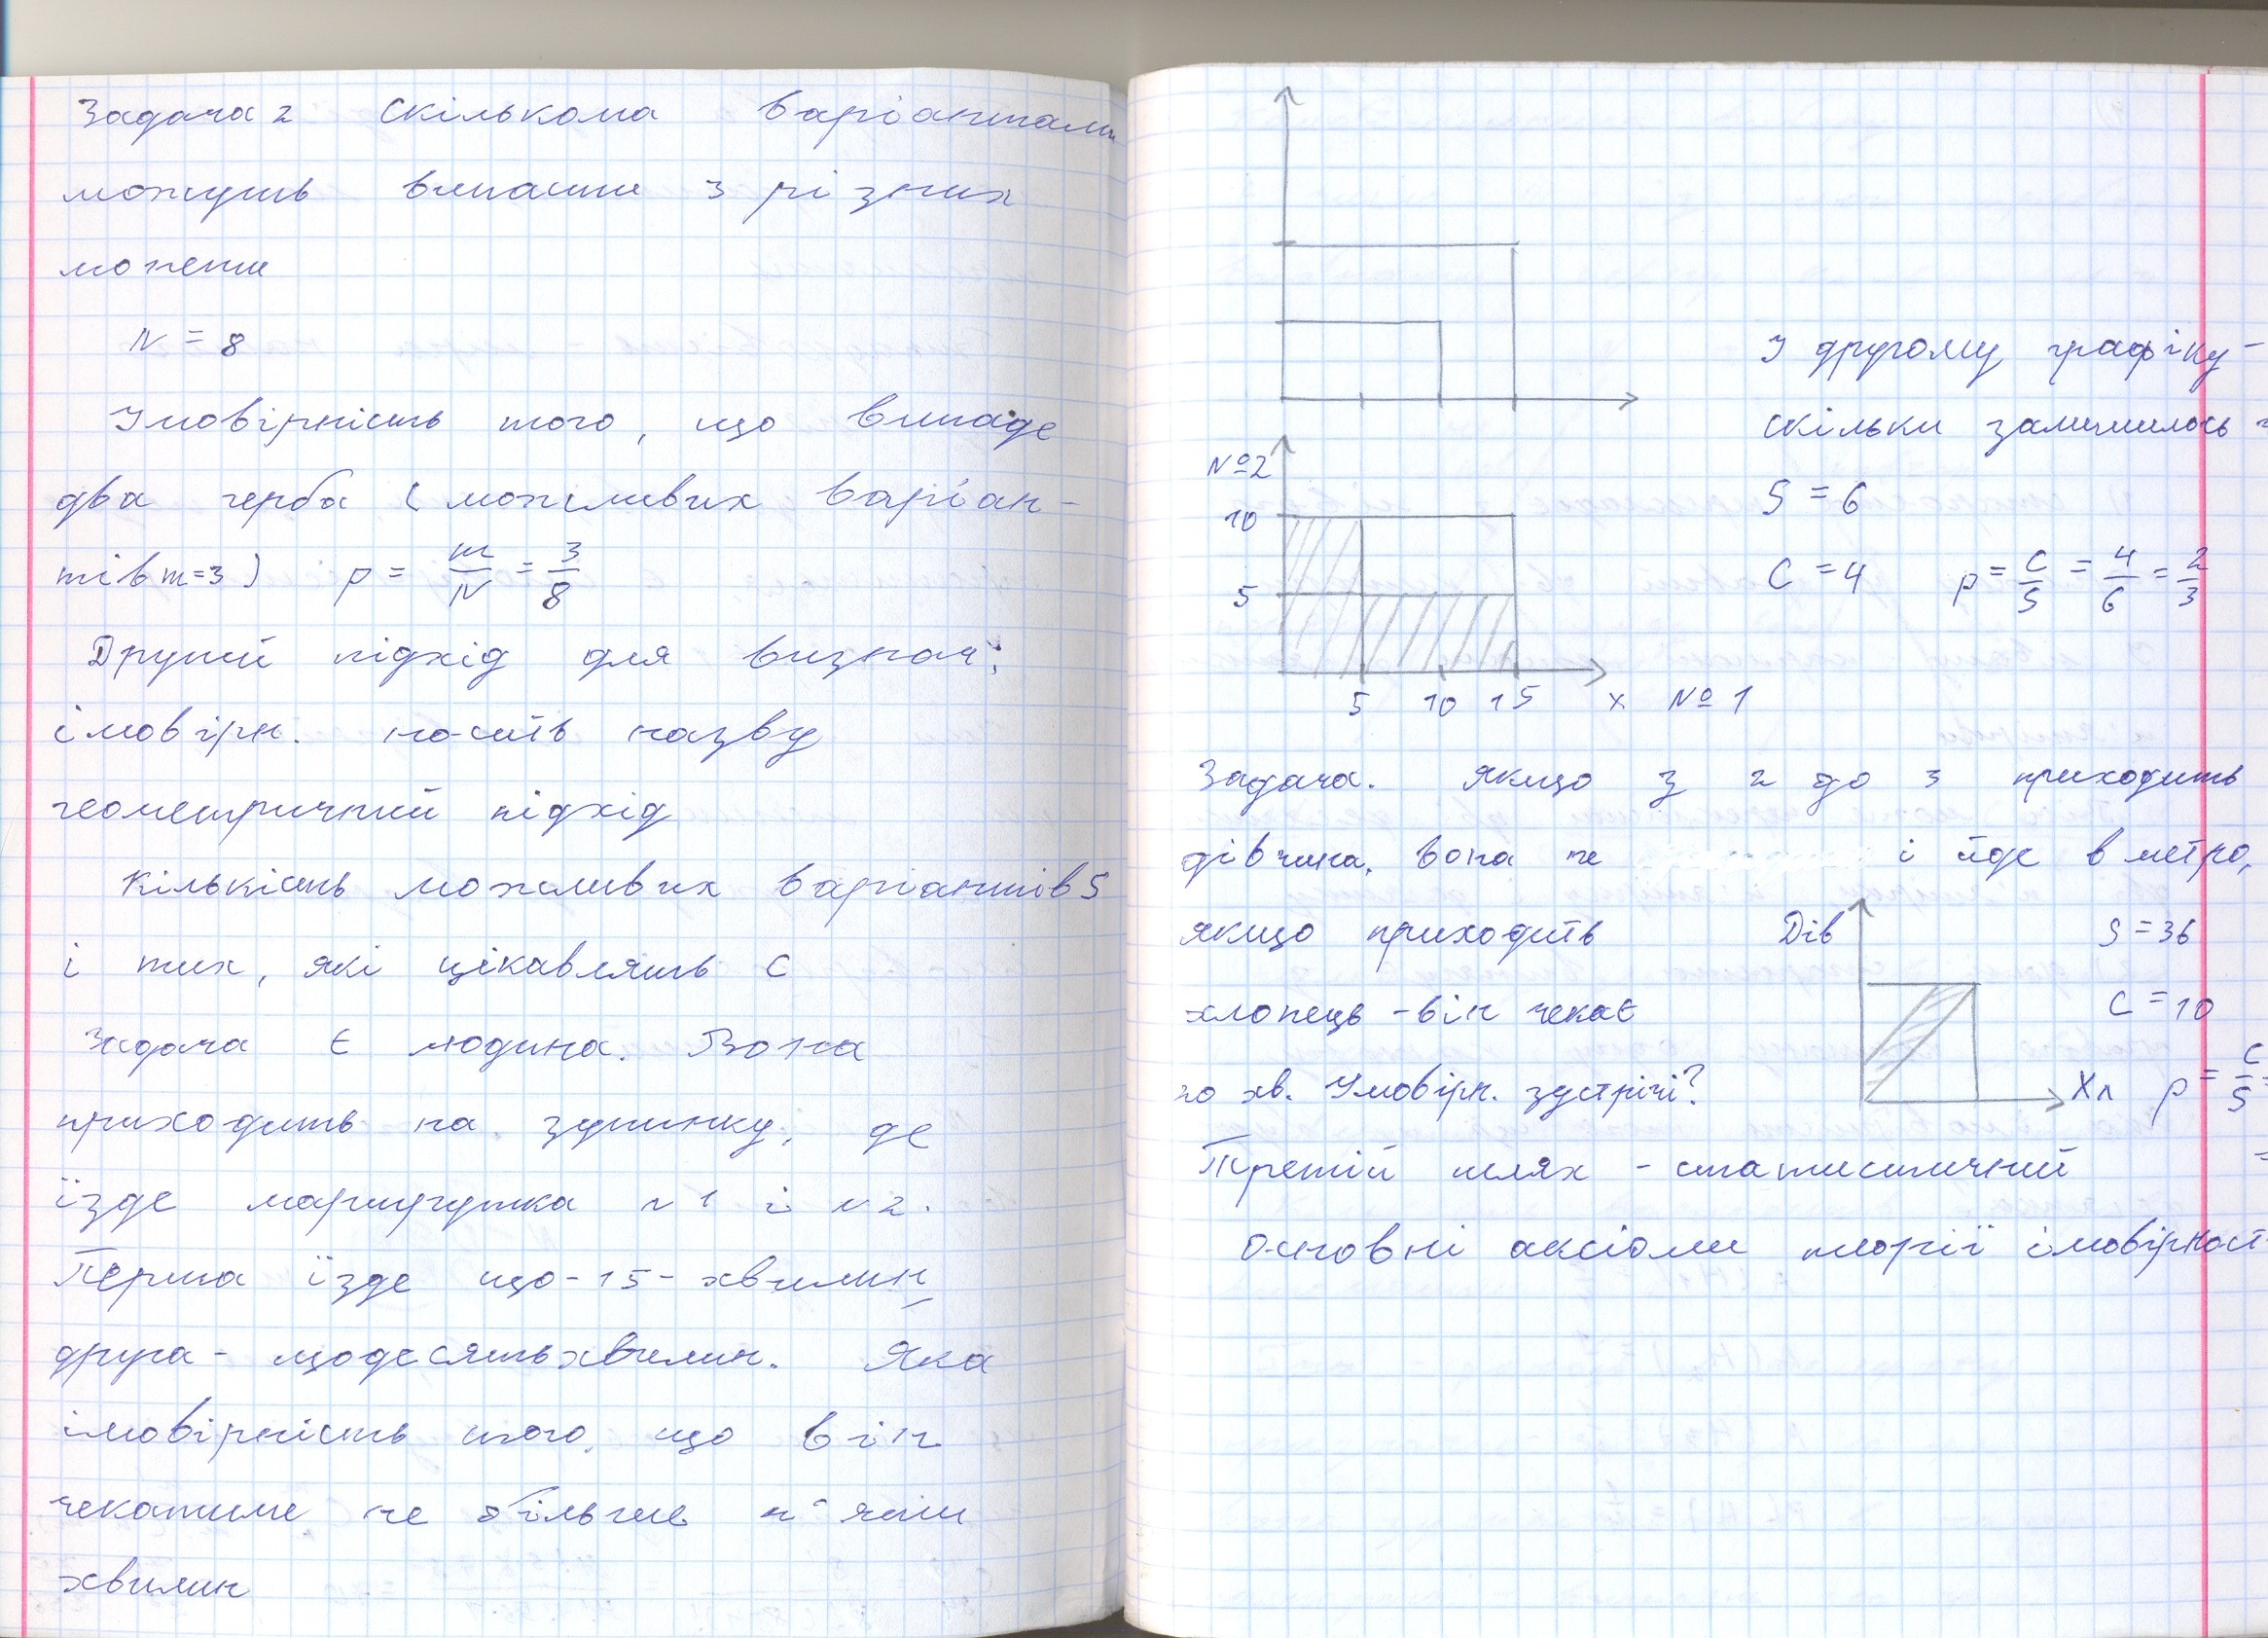 Задача 2 Скількома варіантами
можуть випасти 3 різних
монети
N = 8
Імовірність того, що випаде
два герба (можливих варіан-
тів m=3) p = m/N = 3/8
Другий підхід для визнач.
імовірн. носить назву
геометричний підхід
Кількість можливих варіантів S
і тих, які цікавлять C
Задача Є людина. Вона
приходить на зупинку, де
їзде маршрутка №1 і №2.
Перша їзде що-15-хвилин,
друга - щодесятьхвилин. Яка
імовірність того, що він
чекатиме не більше п'яти
хвилин
У другому графіку -
скільки залишилось
S = 6
C = 4 p = C/S = 4/6 = 2/3
№2
10
5
5 10 15 x №1
Задача. Якщо з 2 до 3 приходить
дівчина, вона не і йде в метро,
якщо приходить
хлопець - він чекає
10 хв. Імовірн. зустрічі?
Дів
S = 36
C = 10
Хл p = C/S =
Третій шлях - статистичний
Основні аксіоми теорії імовірност